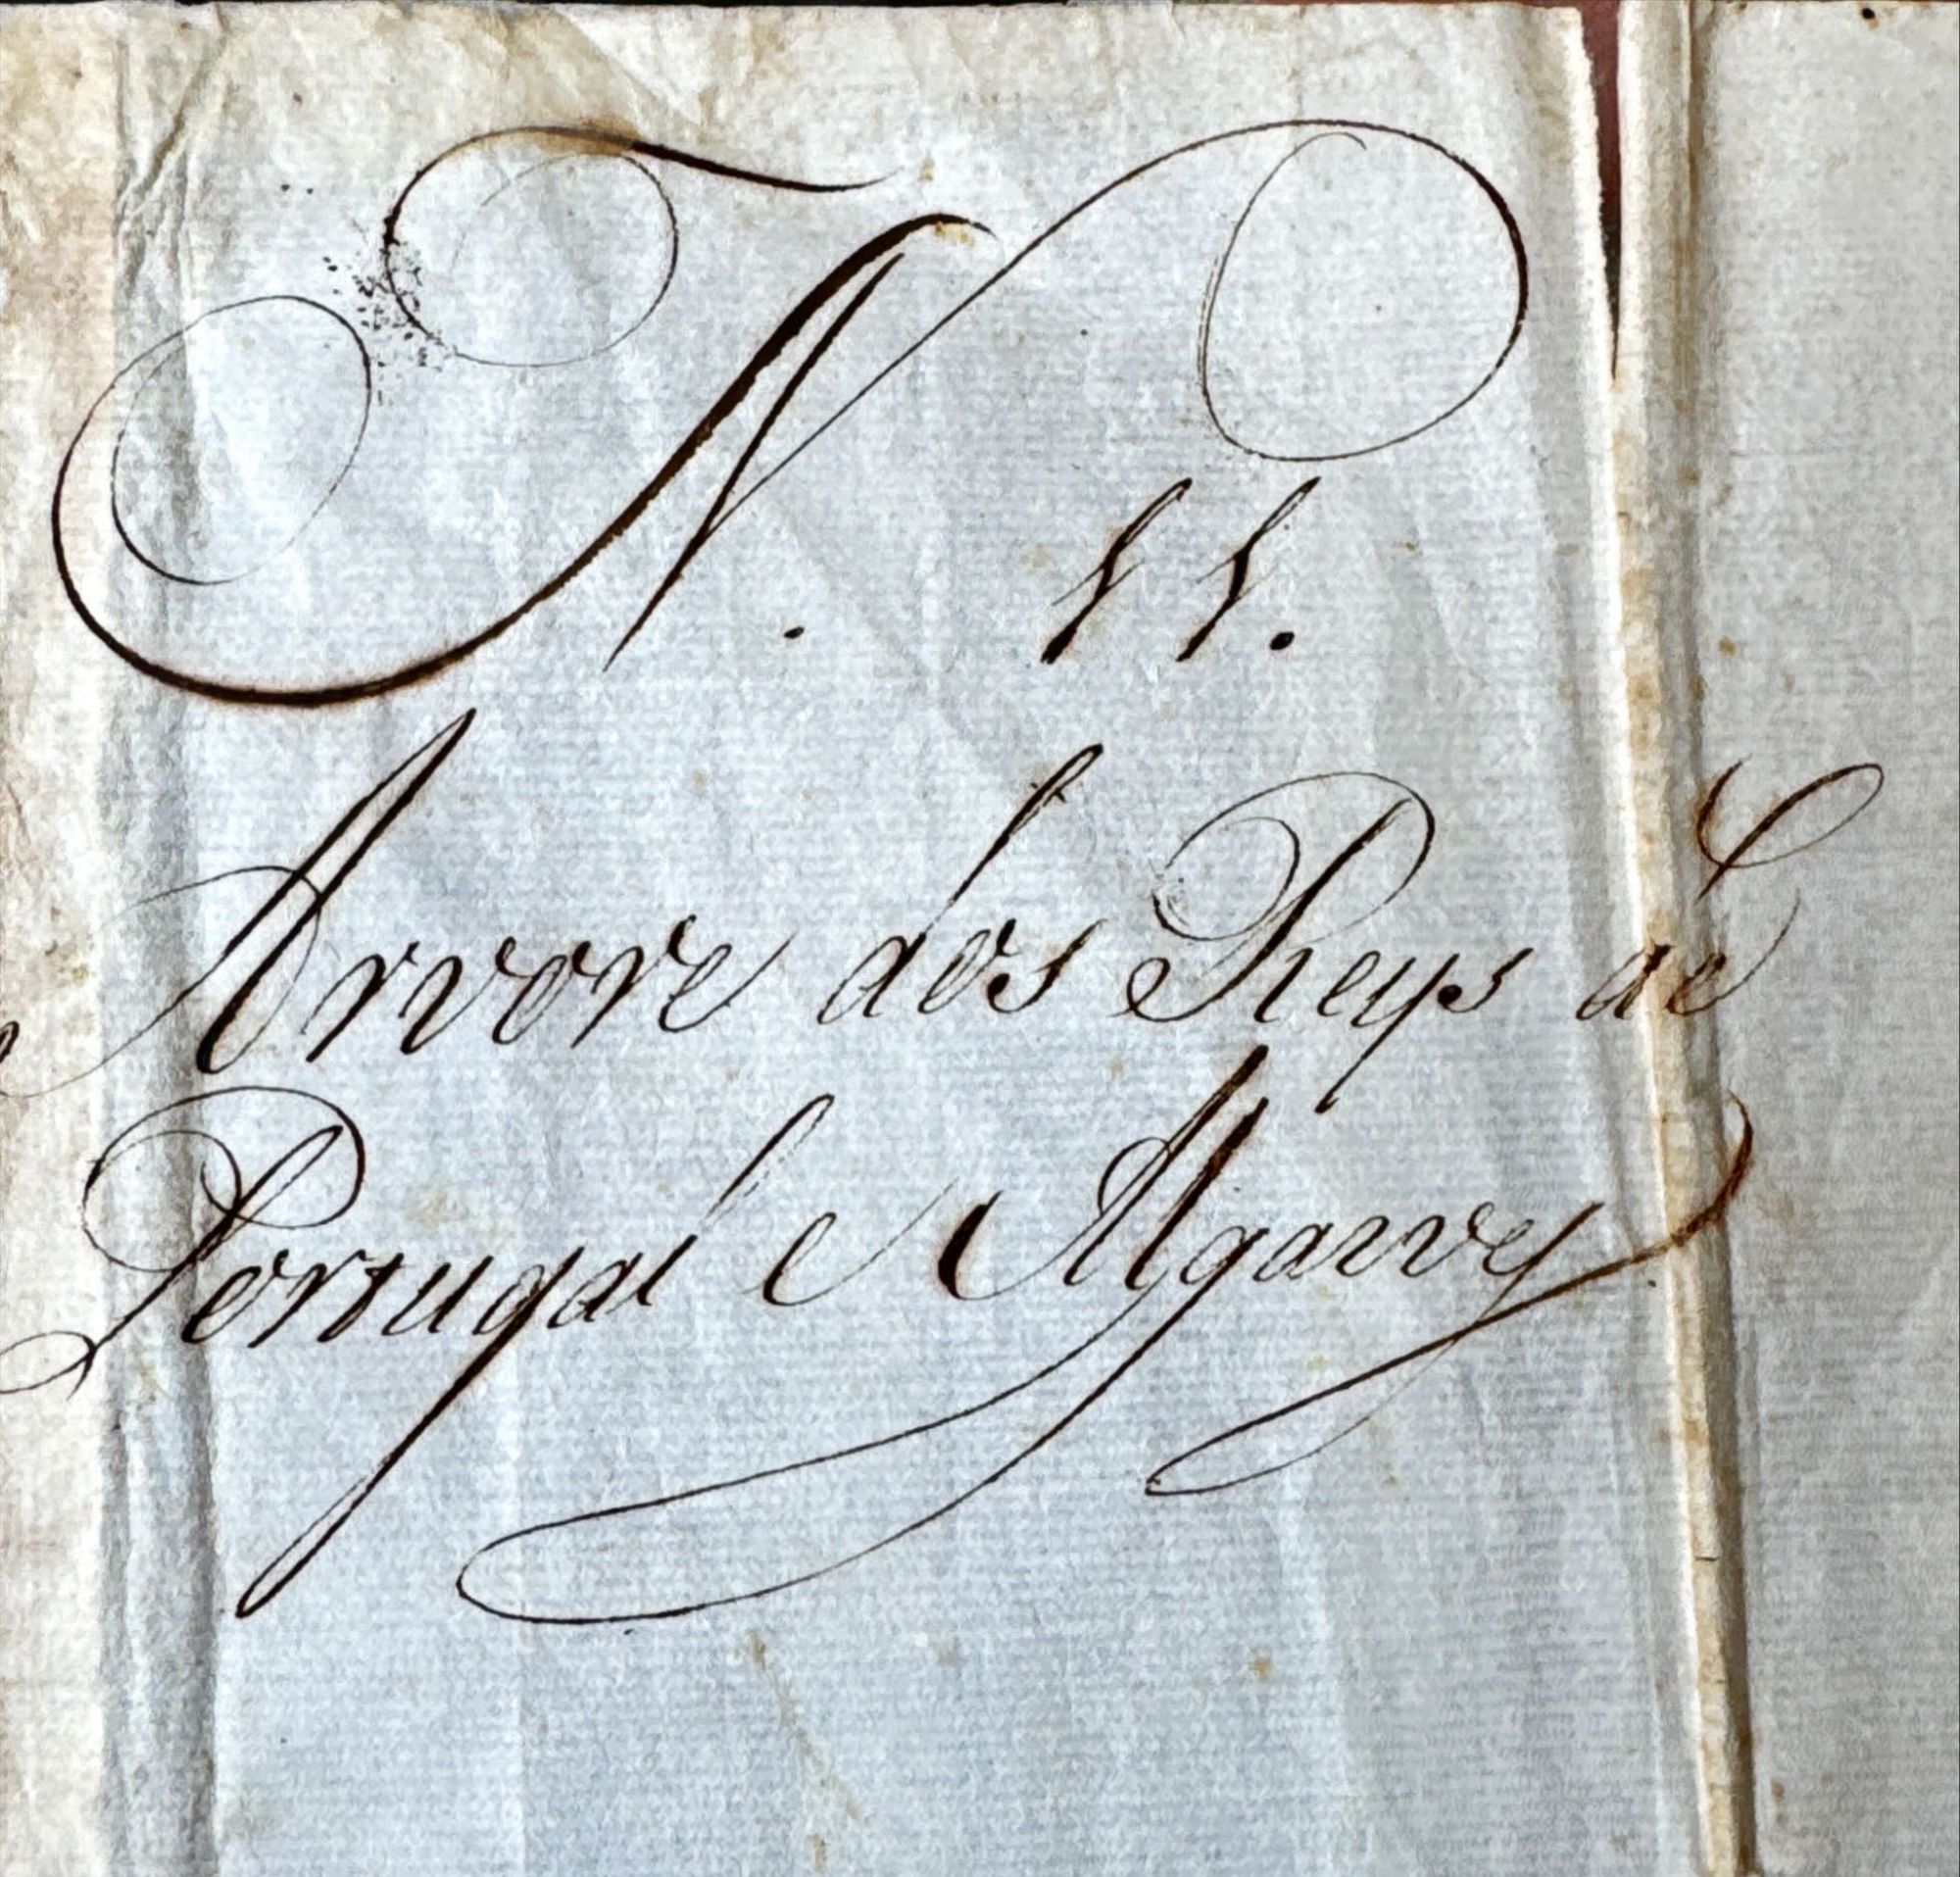 N. 11.
Arvore dos Reys de
Portugal e Algarves